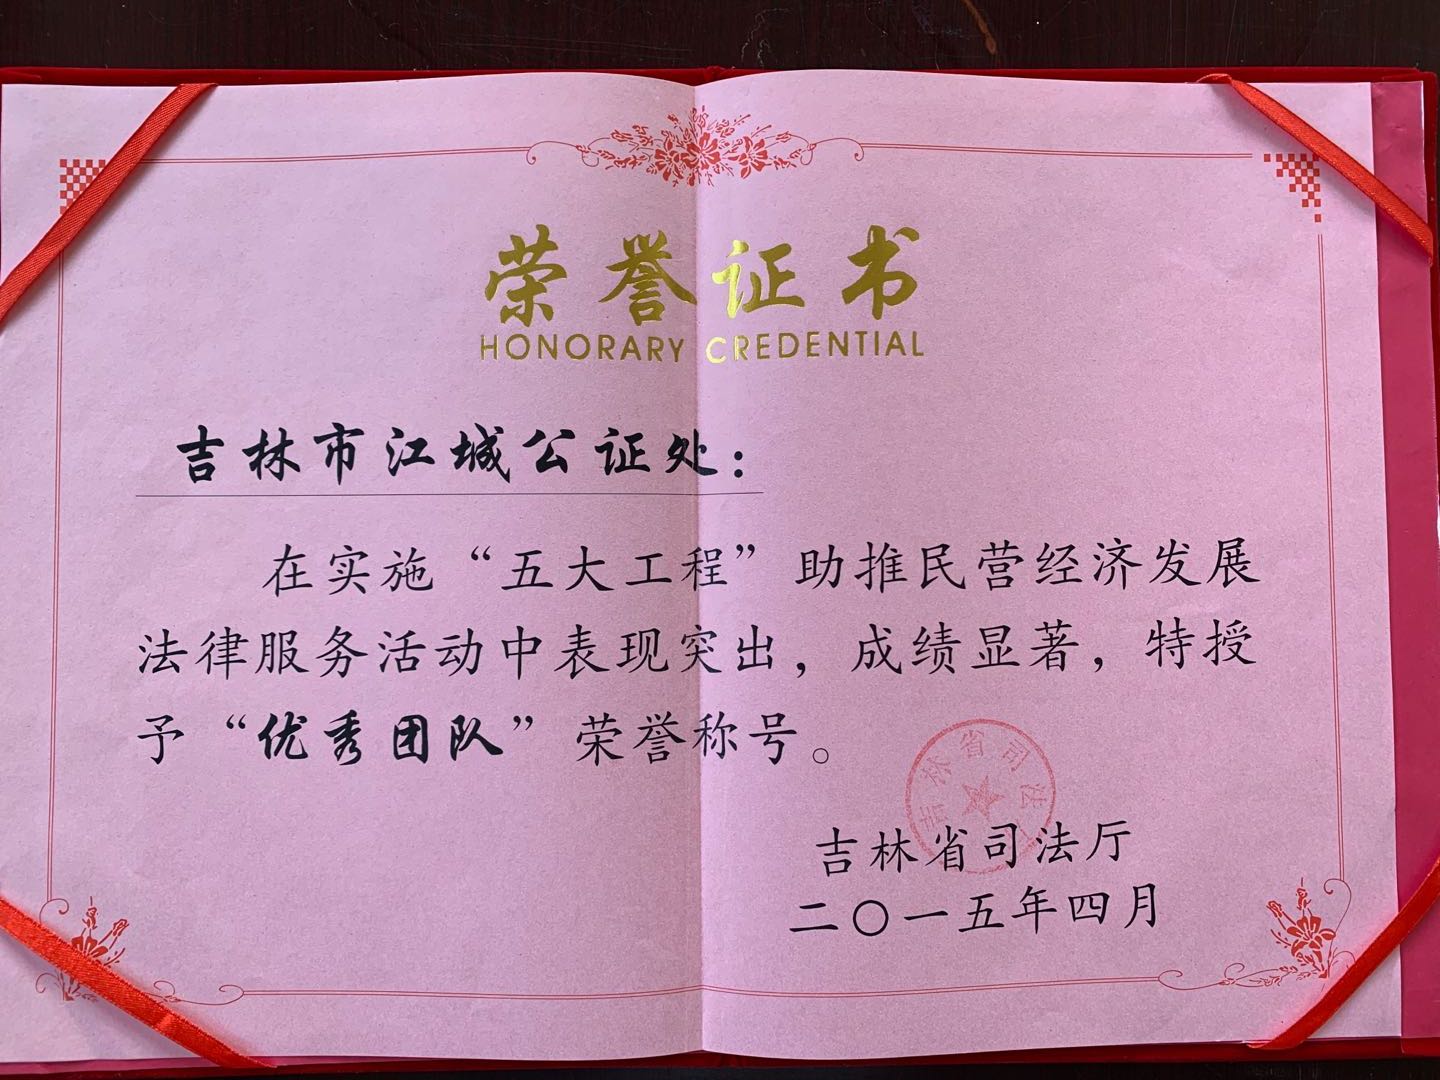 荣誉证书
HONORARY CREDENTIAL
吉林市江城公证处：
在实施“五大工程”助推民营经济发展
法律服务活动中表现突出，成绩显著，特授
予“优秀团队”荣誉称号。
吉林省司法厅
吉林省司法厅
二〇一五年四月